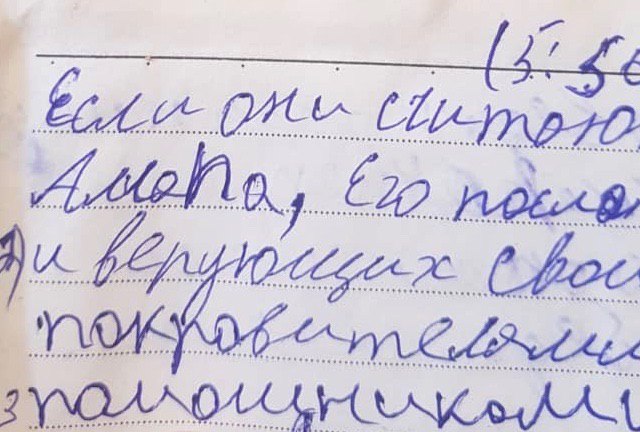 (5:56
Если они считаю
Аллаһа, Его послан
2) и верующих свои
покровителями
3 помощниками